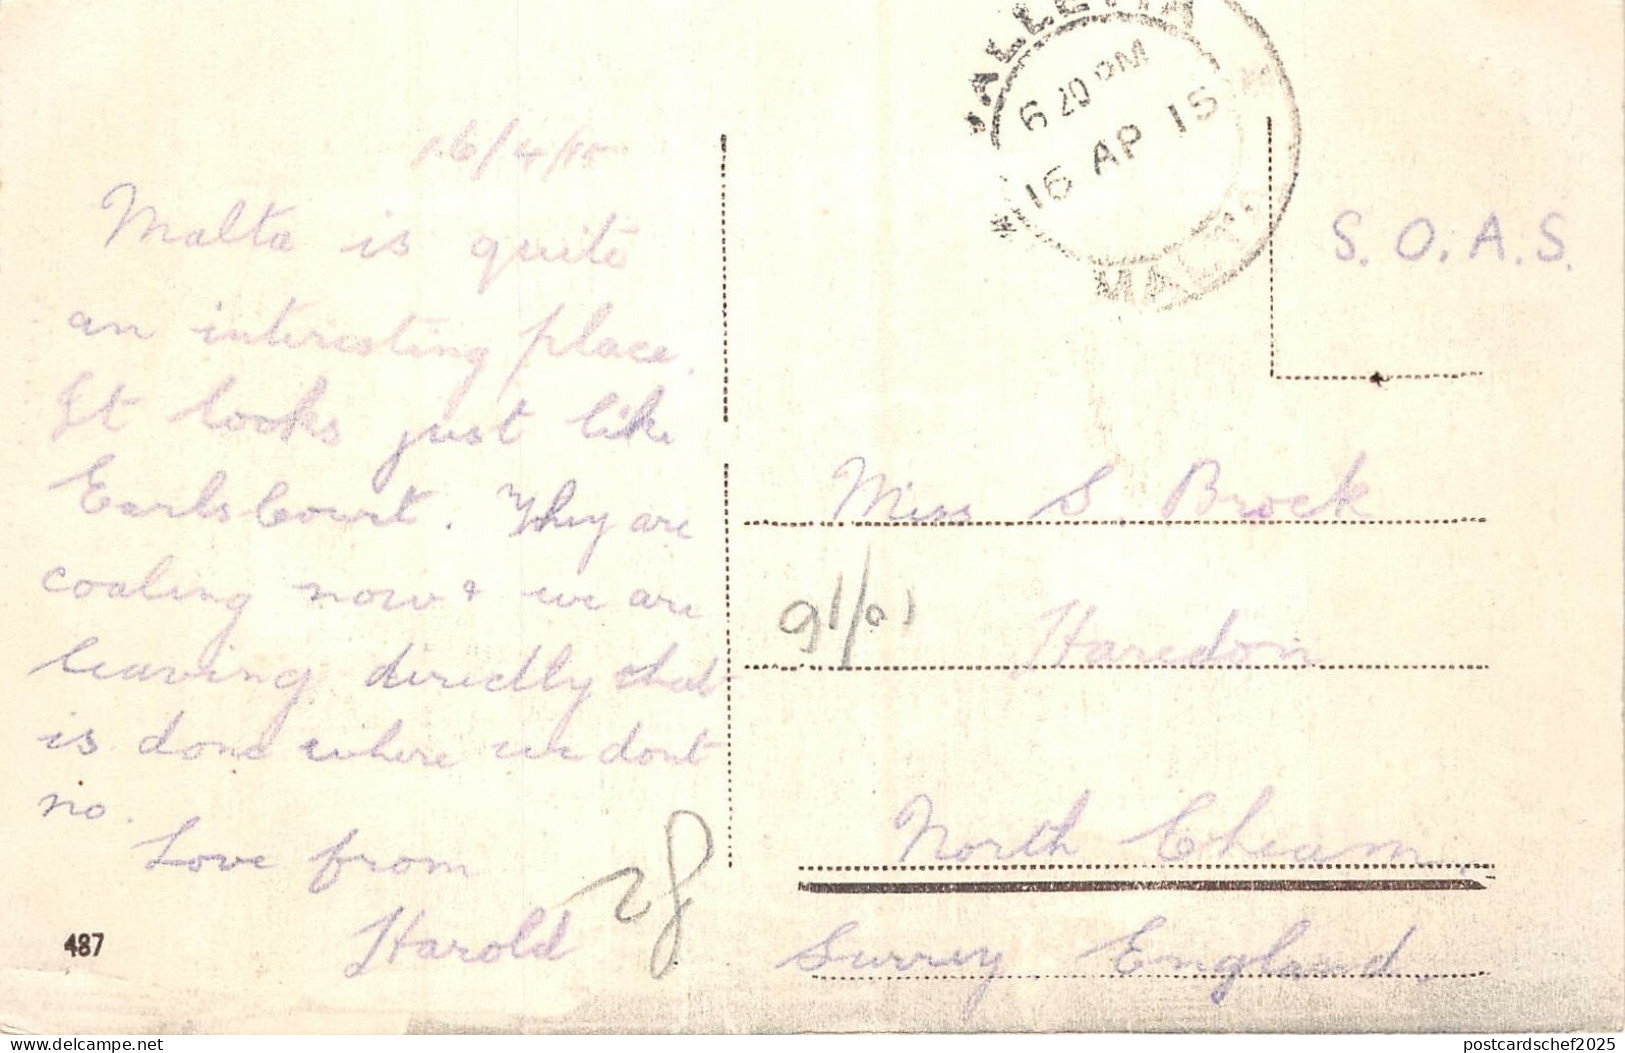 VALLETTA
6 20 PM
16 AP 15
MALTA
16/4/15
Malta is quite
an interesting place.
It looks just like
Earls Court. They are
coaling now & we are
leaving directly that
is done where we dont
no.
Love from
Harold
487
S.O.A.S.
Miss S. Brock
Haredon
North Cheam
Surrey England.
delcampe.net
postcardschef2025